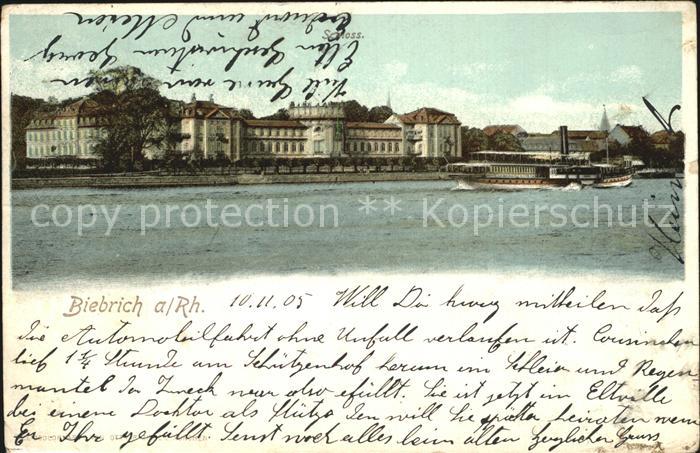 Schloss.
Viel Grüsse von
Eltern Geschwistern Georg
und Meier
copy protection ** Kopierschutz
Biebrich a/Rh. 10.11.05 Will Dir kurz mitteilen daß
die Automobilfahrt ohne Unfall verlaufen ist. Cousinchen
lief 1¾ Stunde am Schützenhof herum im Schleier und Regen
mantel der Zweck war also erfüllt. Sie ist jetzt in Eltville
bei einem Doktor als Stütze den will Sie später heiraten wenn
Er Ihr gefällt Sonst noch alles beim alten herzlichen Gruss